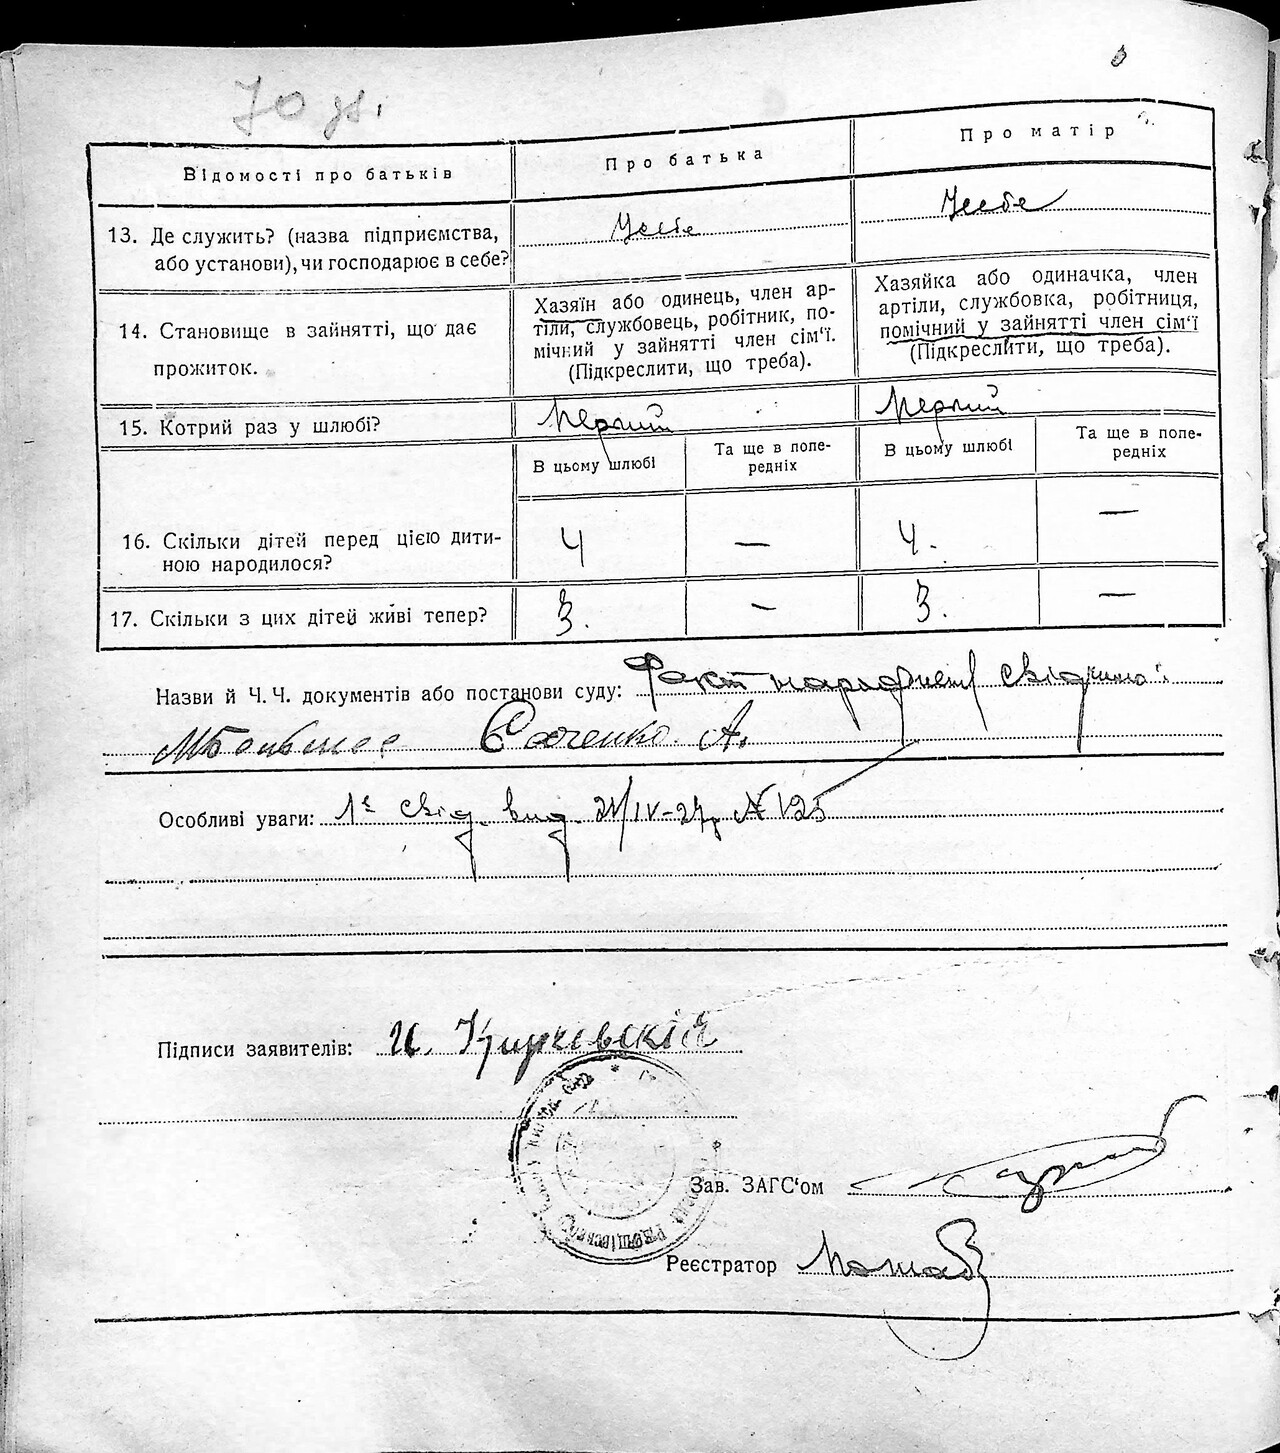 70
Відомості про батьків
Про батька
Про матір
13. Де служить? (назва підприємства,
або установи), чи господарює в себе?
У себе
У себе
14. Становище в зайнятті, що дає
прожиток.
Хазяїн або одинець, член ар-
тіли, службовець, робітник, по-
мічний у зайнятті член сім'ї.
(Підкреслити, що треба).
Хазяйка або одиначка, член
артіли, службовка, робітниця,
помічний у зайнятті член сім'ї
(Підкреслити, що треба).
15. Котрий раз у шлюбі?
Перший
Перший
В цьому шлюбі
Та ще в попе-
редніх
В цьому шлюбі
Та ще в попе-
редніх
16. Скільки дітей перед цією дити-
ною народилося?
4
—
4.
—
17. Скільки з цих дітей живі тепер?
3.
—
3.
—
Назви й Ч. Ч. документів або постанови суду: Факт народження
А.
Особливі уваги: свід. вид. №125
Підписи заявителів: И.
Зав. ЗАГС'ом
Реєстратор